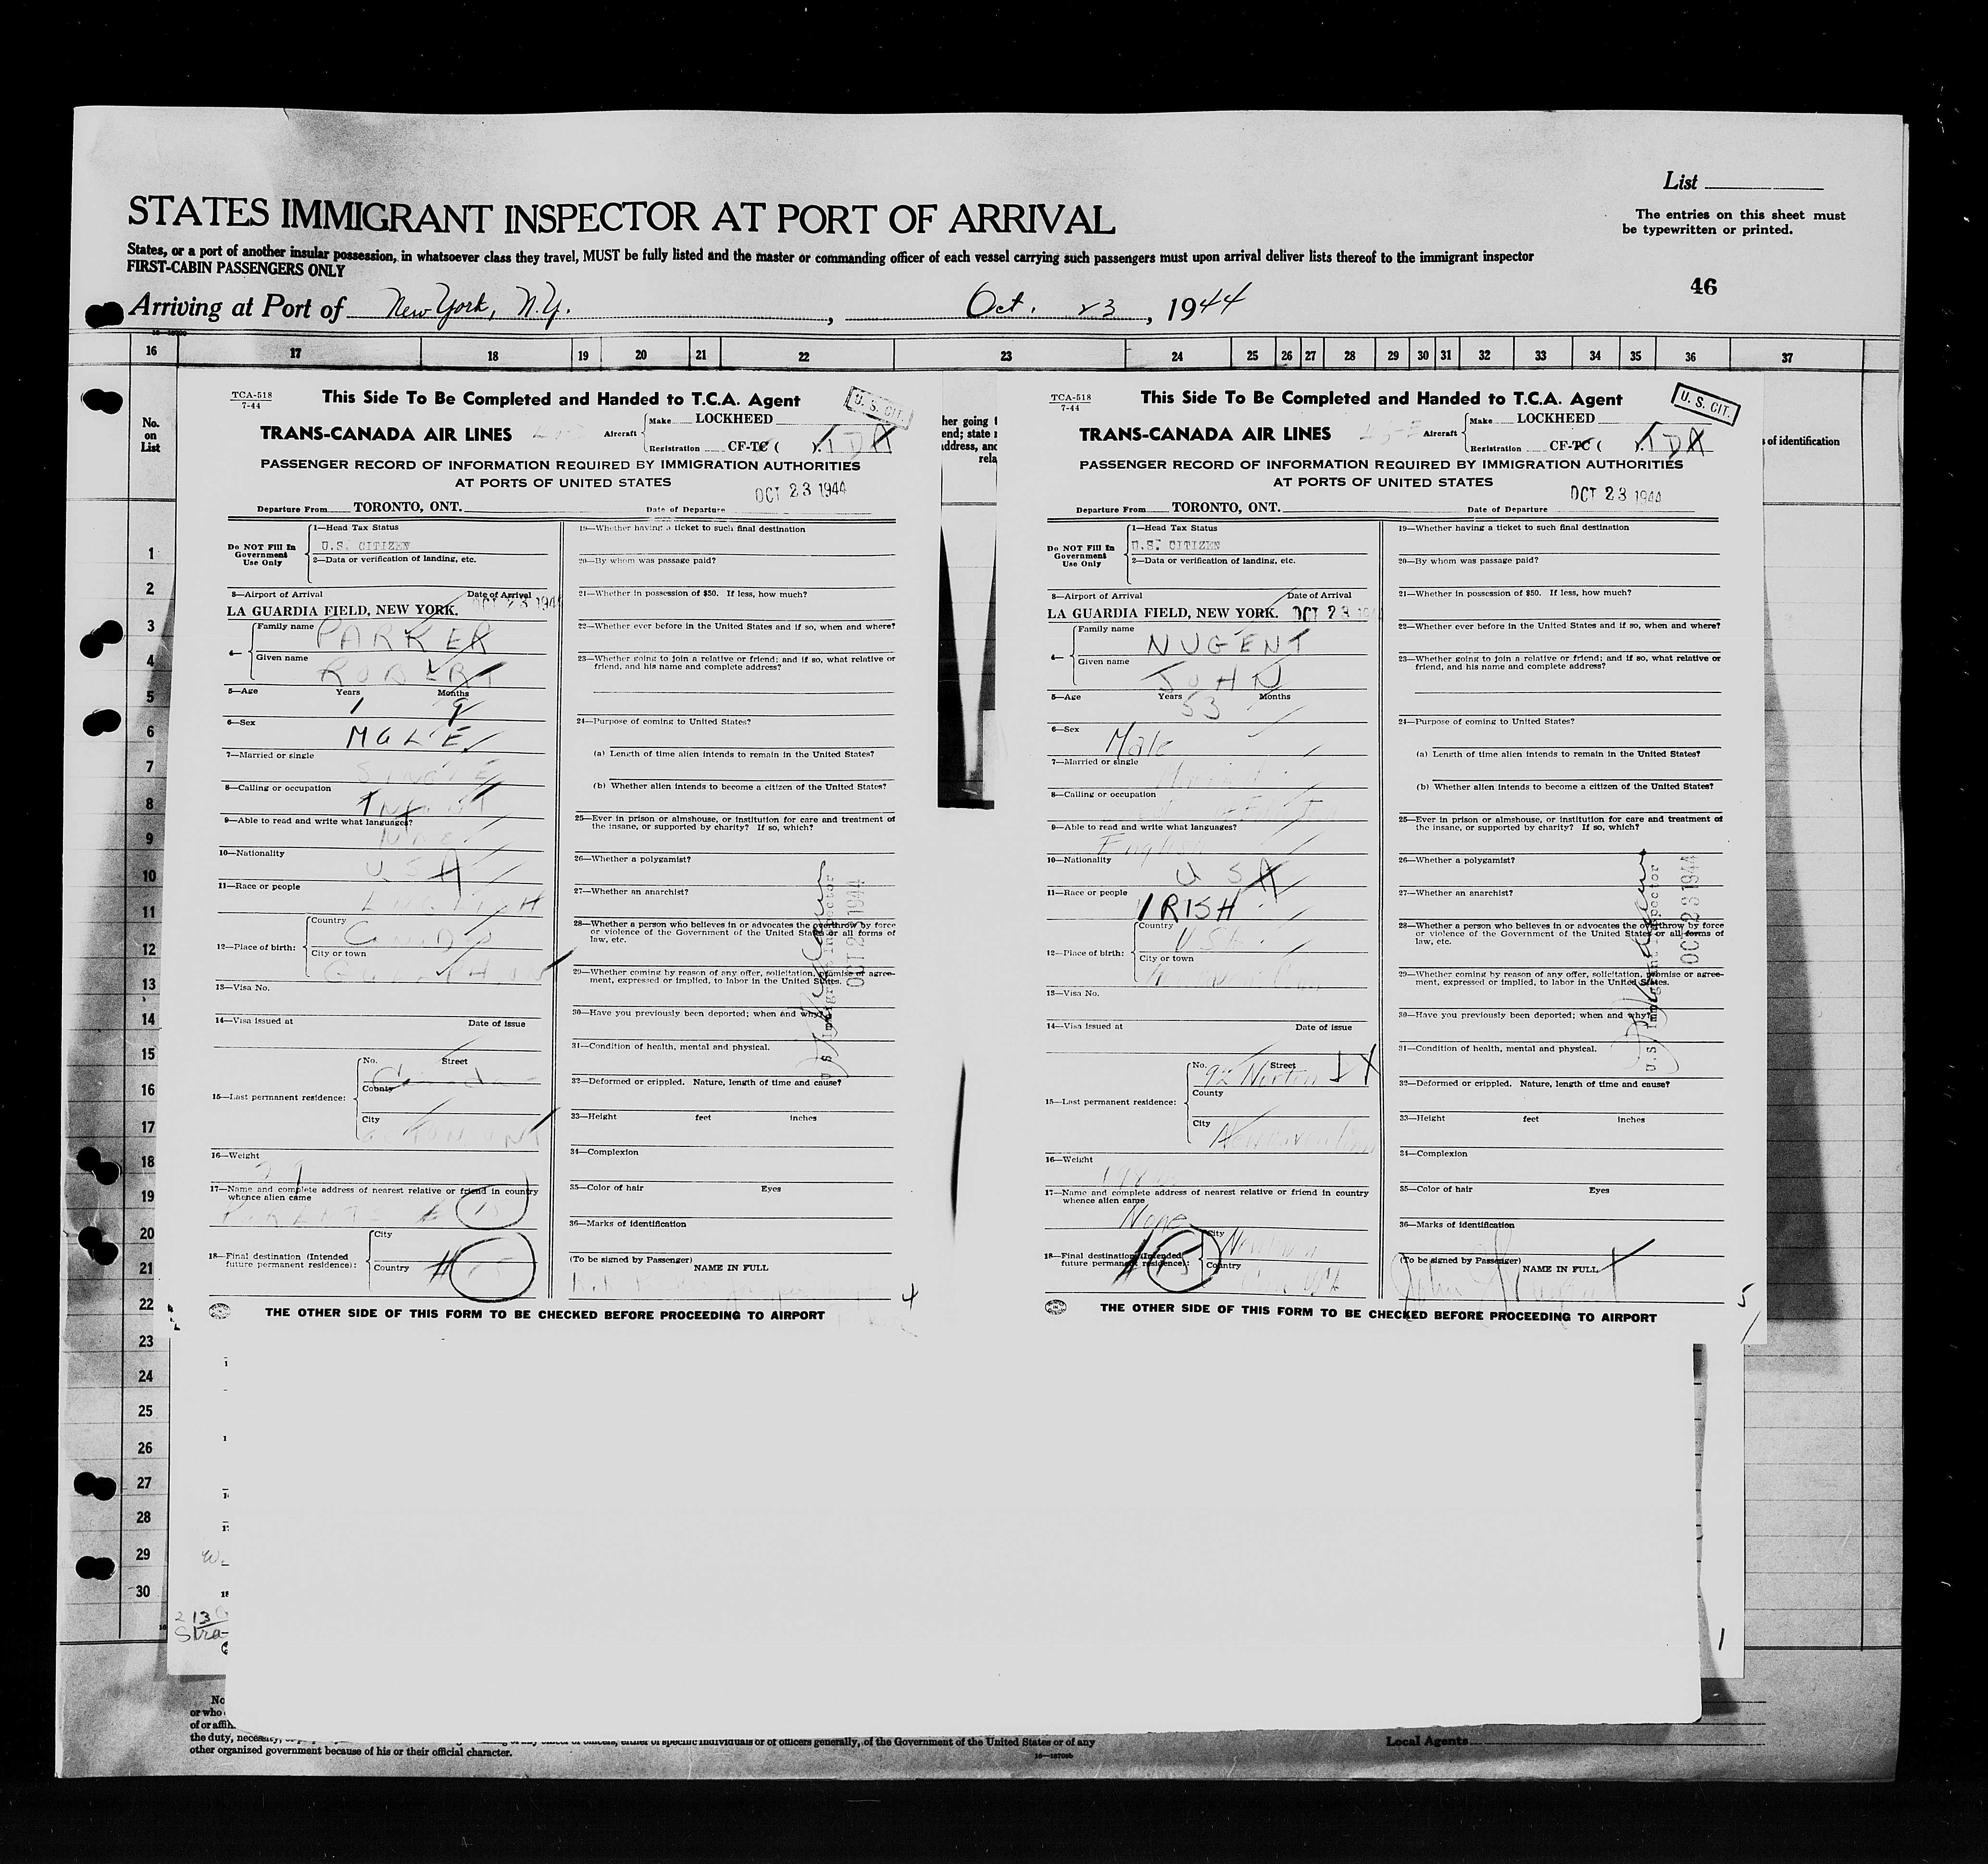 List
STATES IMMIGRANT INSPECTOR AT PORT OF ARRIVAL
The entries on this sheet must
be typewritten or printed.
States, or a port of another insular possession, in whatsoever class they travel, MUST be fully listed and the master or commanding officer of each vessel carrying such passengers must upon arrival deliver lists thereof to the immigrant inspector
FIRST-CABIN PASSENGERS ONLY
46
Arriving at Port of New York, N.Y., Oct. 23, 1944
16 17 18 19 20 21 22 23 24 25 26 27 28 29 30 31 32 33 34 35 36 37
No.
on
List
1
2
3
4
5
6
7
8
9
10
11
12
13
14
15
16
17
18
19
20
21
22
23
24
25
26
27
28
29
30
TCA-518
7-44
This Side To Be Completed and Handed to T.C.A. Agent
U. S. CIT.
TRANS-CANADA AIR LINES
Aircraft
Make LOCKHEED
Registration CF-TC ( ). TDA
PASSENGER RECORD OF INFORMATION REQUIRED BY IMMIGRATION AUTHORITIES
AT PORTS OF UNITED STATES
OCT 23 1944
Departure From TORONTO, ONT. Date of Departure
Do NOT Fill In
Government
Use Only
1—Head Tax Status
U.S. CITIZEN
2—Data or verification of landing, etc.
3—Airport of Arrival Date of Arrival
LA GUARDIA FIELD, NEW YORK. OCT 23 194
4— Family name PARKER
Given name ROBERT
5—Age Years Months
1 9
6—Sex
MALE
7—Married or single
SINGLE
8—Calling or occupation
INFANT
9—Able to read and write what languages?
10—Nationality
USA
11—Race or people
ENGLISH
12—Place of birth:
Country
Canada
City or town
13—Visa No.
14—Visa issued at Date of issue
15—Last permanent residence:
No. Street
County
Canada
City
16—Weight
17—Name and complete address of nearest relative or friend in country
whence alien came
PARENTS # 15
18—Final destination (Intended
future permanent residence):
City
Country
#
19—Whether having a ticket to such final destination
20—By whom was passage paid?
21—Whether in possession of $50. If less, how much?
22—Whether ever before in the United States and if so, when and where?
23—Whether going to join a relative or friend; and if so, what relative or
friend, and his name and complete address?
24—Purpose of coming to United States?
(a) Length of time alien intends to remain in the United States?
(b) Whether alien intends to become a citizen of the United States?
25—Ever in prison or almshouse, or institution for care and treatment of
the insane, or supported by charity? If so, which?
26—Whether a polygamist?
27—Whether an anarchist?
28—Whether a person who believes in or advocates the overthrow by force
or violence of the Government of the United States or all forms of
law, etc.
29—Whether coming by reason of any offer, solicitation, promise or agree-
ment, expressed or implied, to labor in the United States.
30—Have you previously been deported; when and why?
31—Condition of health, mental and physical.
32—Deformed or crippled. Nature, length of time and cause?
33—Height feet inches
34—Complexion
35—Color of hair Eyes
36—Marks of identification
(To be signed by Passenger)
NAME IN FULL
U.S. Immigrant Inspector
OCT 23 1944
4
THE OTHER SIDE OF THIS FORM TO BE CHECKED BEFORE PROCEEDING TO AIRPORT
her going
end; state
address, and
rela
TCA-518
7-44
This Side To Be Completed and Handed to T.C.A. Agent
U. S. CIT.
TRANS-CANADA AIR LINES
Aircraft
Make LOCKHEED
Registration CF-TC ( ). TDA
PASSENGER RECORD OF INFORMATION REQUIRED BY IMMIGRATION AUTHORITIES
AT PORTS OF UNITED STATES
OCT 23 1944
Departure From TORONTO, ONT. Date of Departure
Do NOT Fill In
Government
Use Only
1—Head Tax Status
U.S. CITIZEN
2—Data or verification of landing, etc.
3—Airport of Arrival Date of Arrival
LA GUARDIA FIELD, NEW YORK. OCT 23 19
4— Family name
NUGENT
Given name
JOHN
5—Age Years Months
53
6—Sex
Male
7—Married or single
8—Calling or occupation
9—Able to read and write what languages?
English
10—Nationality
USA
11—Race or people
IRISH
12—Place of birth:
Country
USA
City or town
13—Visa No.
14—Visa issued at Date of issue
15—Last permanent residence:
No. Street
92 Norton St
County
City
New Haven Conn
16—Weight
17—Name and complete address of nearest relative or friend in country
whence alien came
None
18—Final destination (Intended
future permanent residence):
# 15
City
Country
USA
19—Whether having a ticket to such final destination
20—By whom was passage paid?
21—Whether in possession of $50. If less, how much?
22—Whether ever before in the United States and if so, when and where?
23—Whether going to join a relative or friend; and if so, what relative or
friend, and his name and complete address?
24—Purpose of coming to United States?
(a) Length of time alien intends to remain in the United States?
(b) Whether alien intends to become a citizen of the United States?
25—Ever in prison or almshouse, or institution for care and treatment of
the insane, or supported by charity? If so, which?
26—Whether a polygamist?
27—Whether an anarchist?
28—Whether a person who believes in or advocates the overthrow by force
or violence of the Government of the United States or all forms of
law, etc.
29—Whether coming by reason of any offer, solicitation, promise or agree-
ment, expressed or implied, to labor in the United States.
30—Have you previously been deported; when and why?
31—Condition of health, mental and physical.
32—Deformed or crippled. Nature, length of time and cause?
33—Height feet inches
34—Complexion
35—Color of hair Eyes
36—Marks of identification
(To be signed by Passenger)
NAME IN FULL
John Nugent
U.S. Immigrant Inspector
OCT 23 1944
5
THE OTHER SIDE OF THIS FORM TO BE CHECKED BEFORE PROCEEDING TO AIRPORT
s of identification
213
Stra-
1
No
or who
of or affil
the duty, necessity,
officers, either of specific individuals or of officers generally, of the Government of the United States or of any
other organized government because of his or their official character.
Local Agents